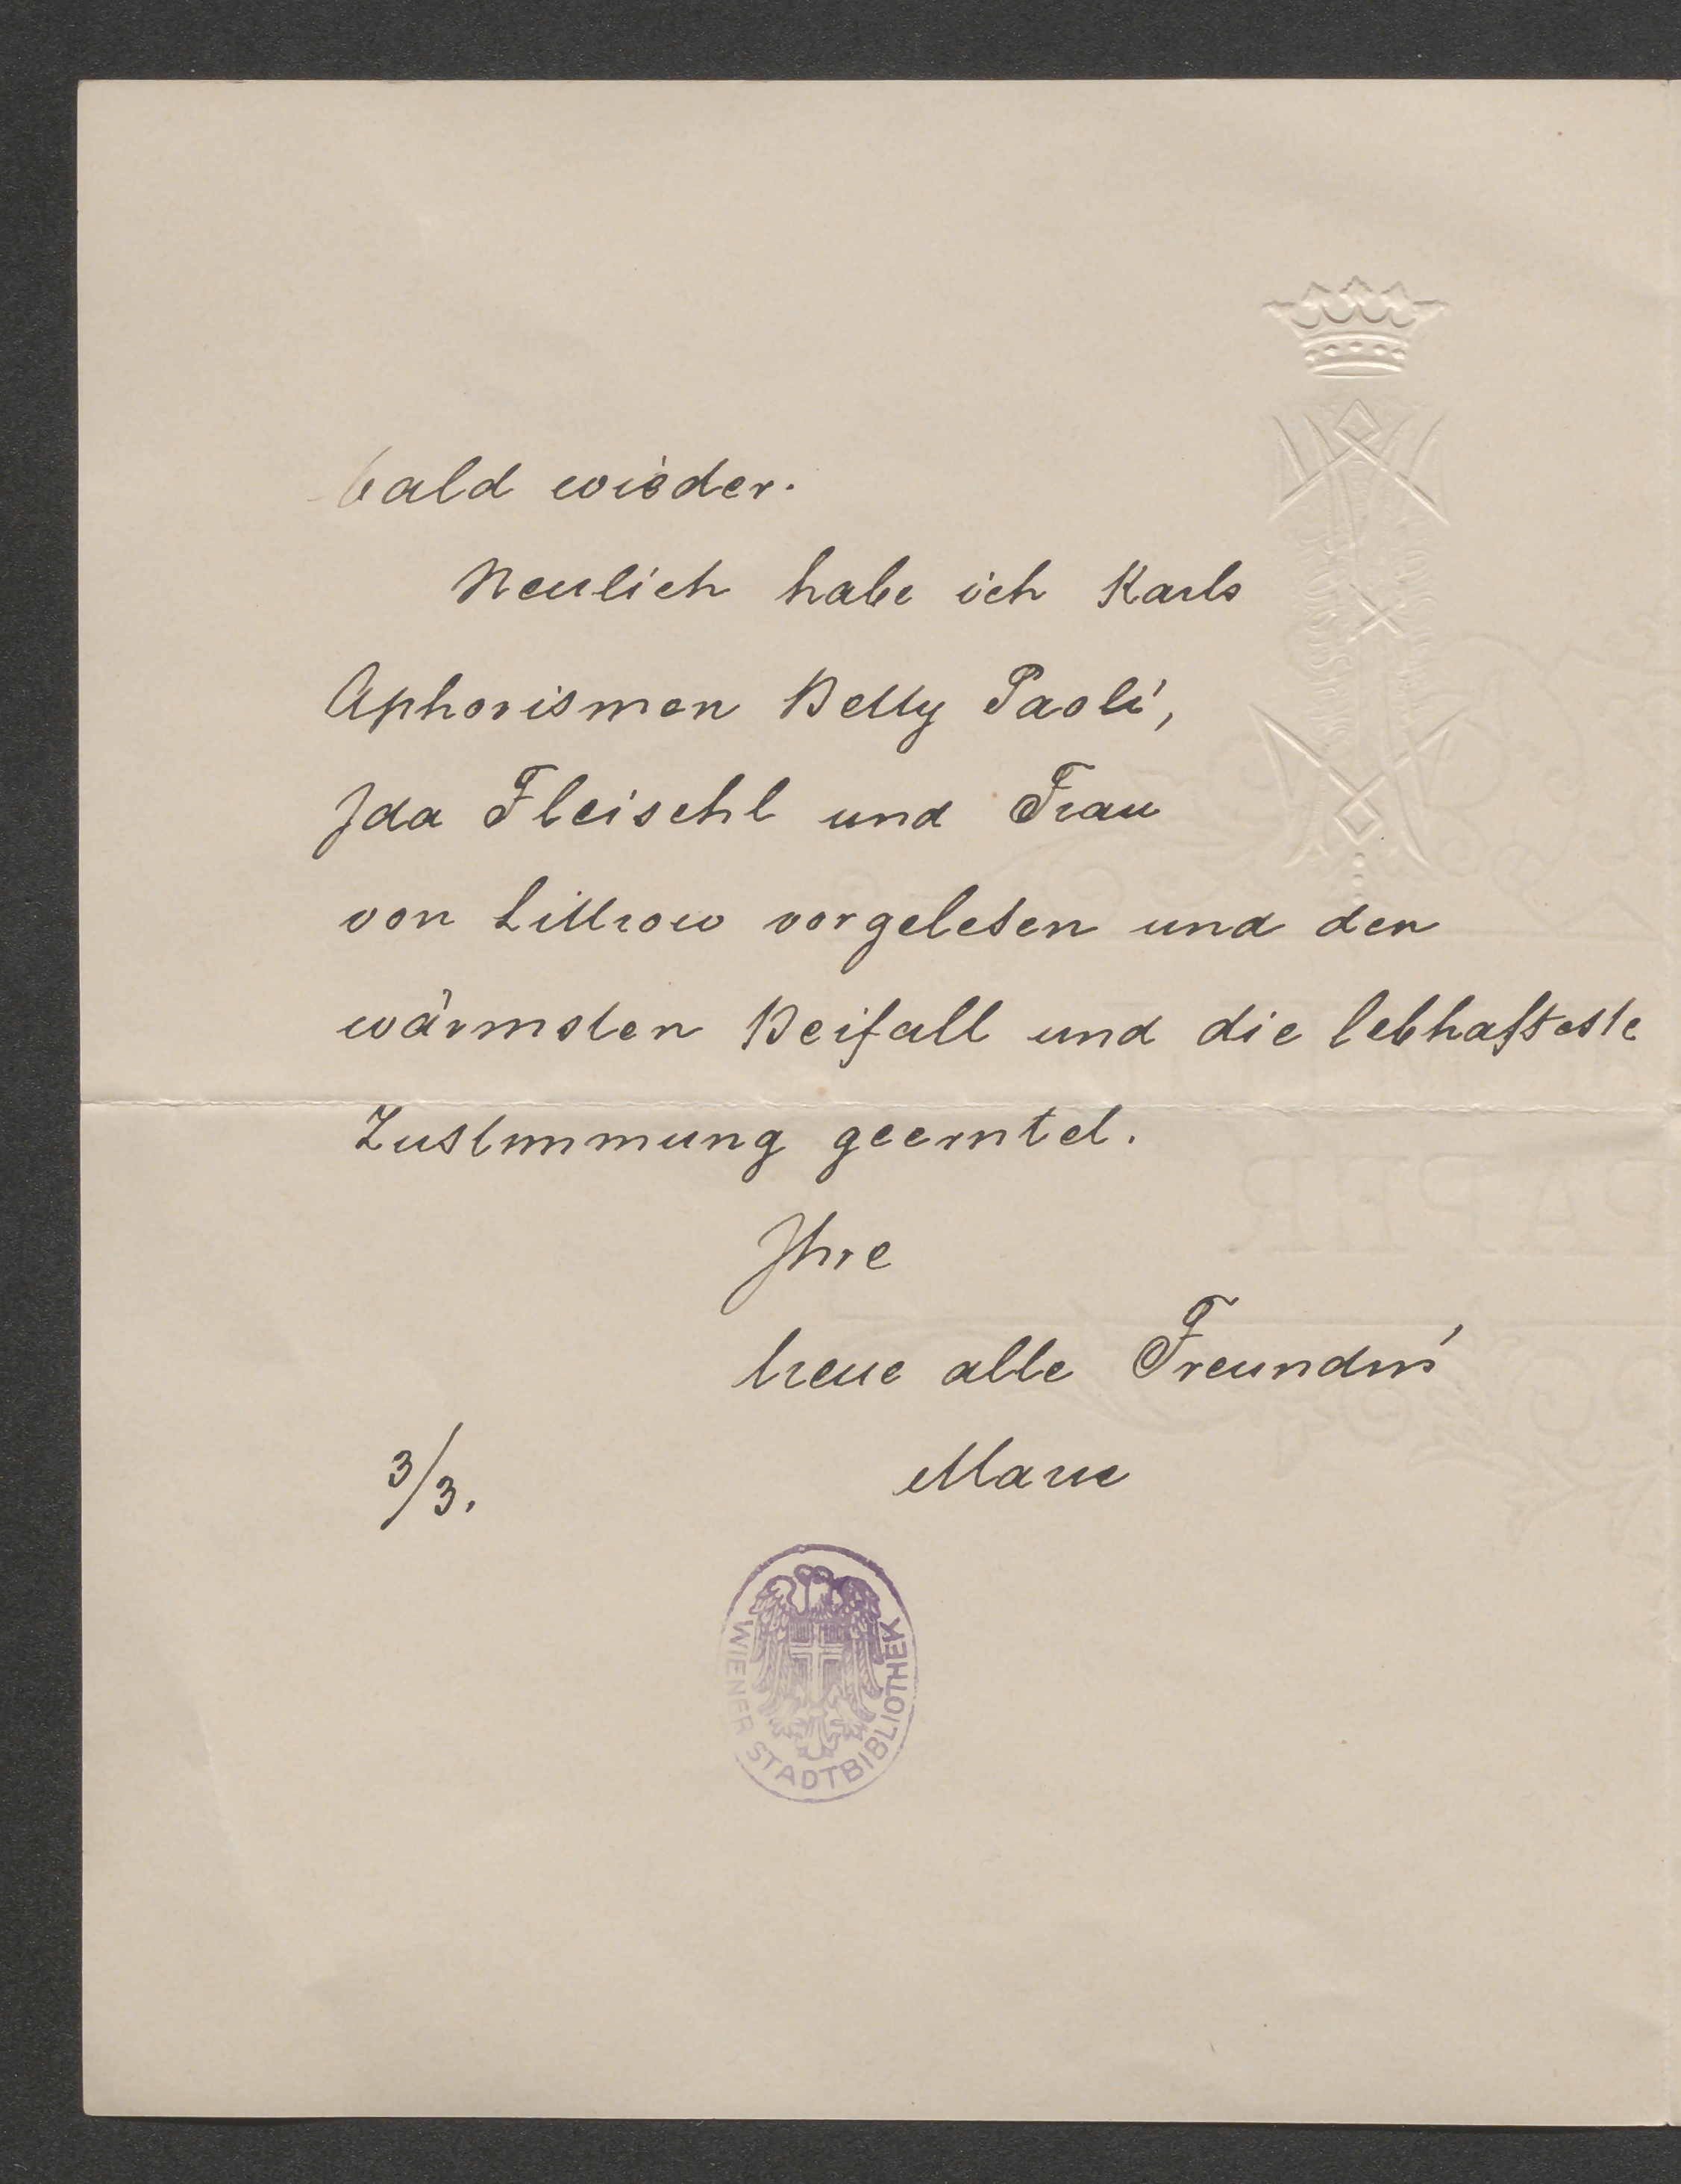 bald wieder.
Neulich habe ich Karls
Aphorismen Betty Paoli,
Ida Fleischl und Frau
von Littrow vorgelesen und den
wärmsten Beifall und die lebhafteste
Zustimmung geerntet.
Ihre
treue alte Freundin
3/3.
Marie
WIENER STADTBIBLIOTHEK
PAPER